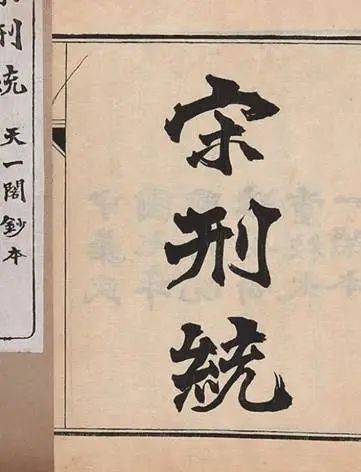 宋刑統
刑統
天一閣鈔本